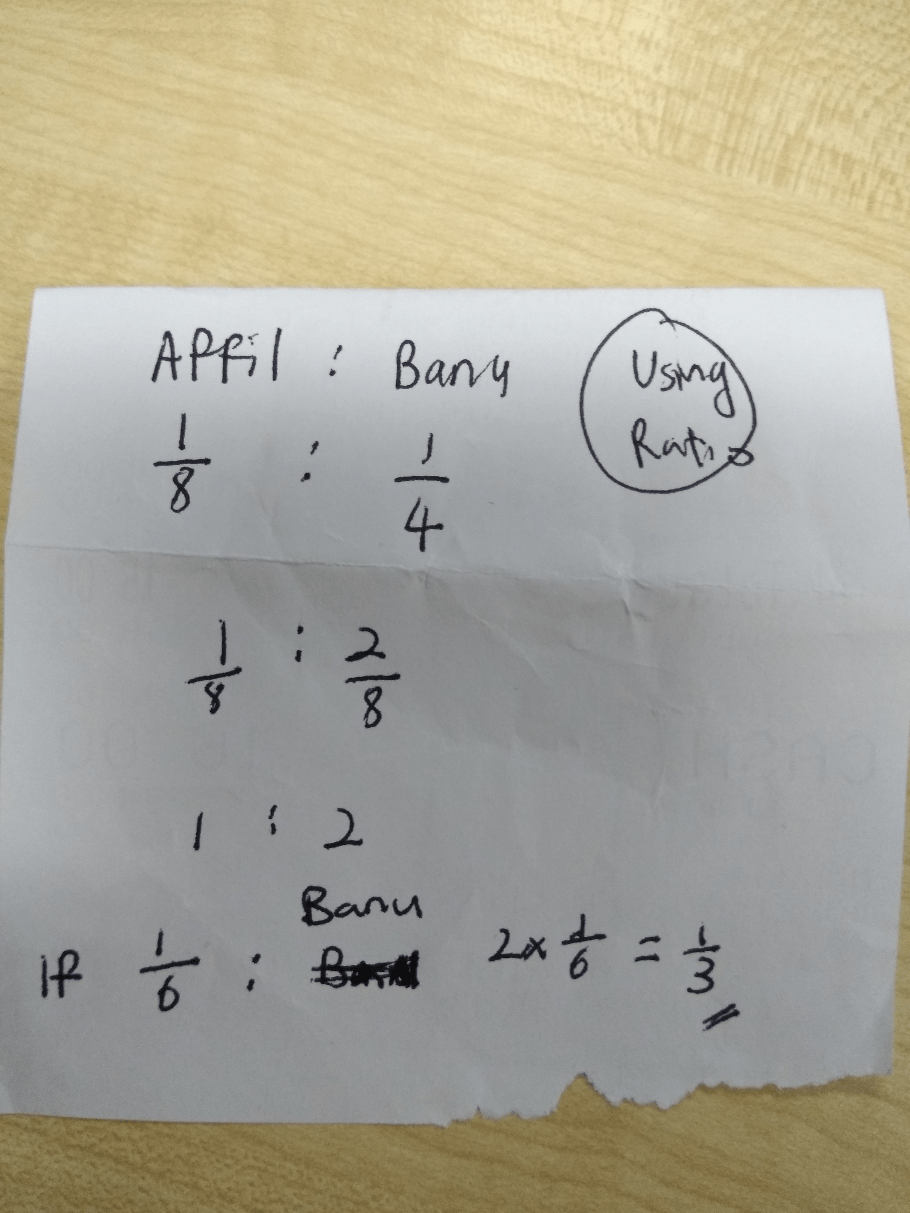 Affil : Banu
Using
Ratio
1/8 : 1/4
1/8 : 2/8
1 : 2
Banu
If 1/6 : 2 x 1/6 = 1/3